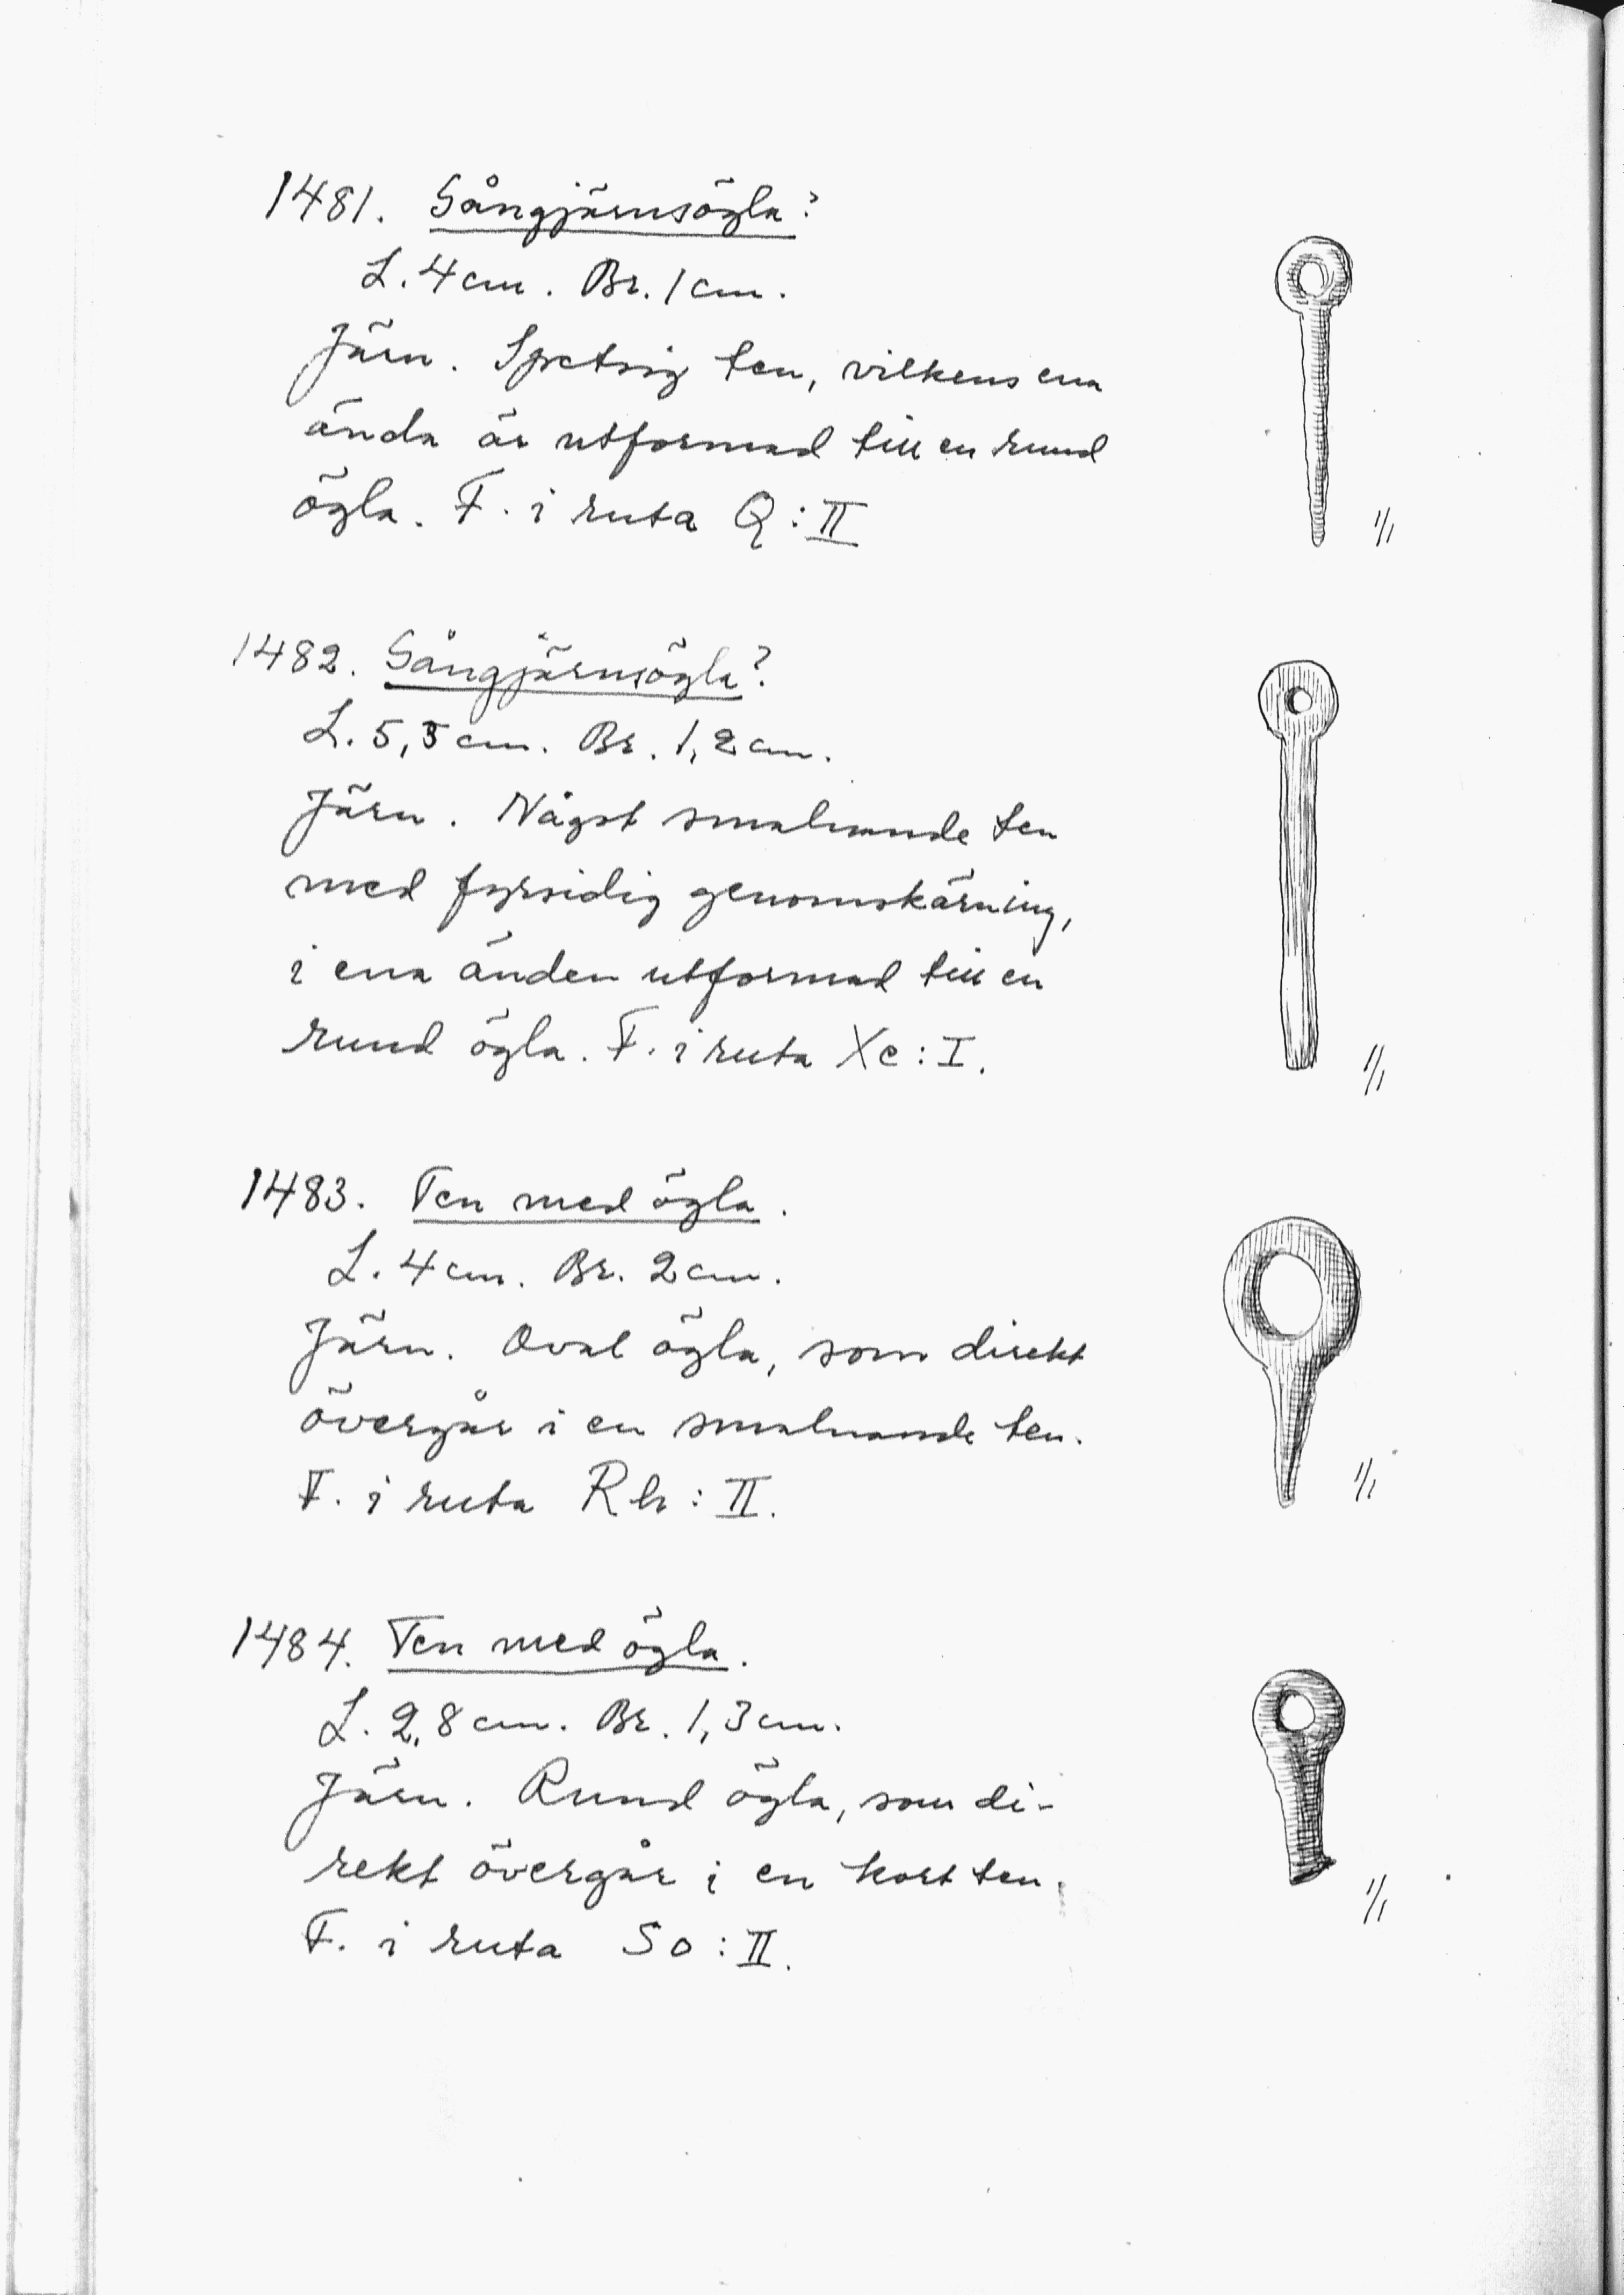 1481. Gångjärnsögla?
L. 4 cm. Br. 1 cm.
Järn. Spetsig ten, vilkens ena
ända är utformad till en rund
ögla. F. i ruta Q : II
1/1
1482. Gångjärnsögla?
L. 5,5 cm. Br. 1,2 cm.
Järn. Något smalnande ten
med fyrsidig genomskärning,
i ena änden utformad till en
rund ögla. F. i ruta Xc : I.
1/1
1483. Ten med ögla.
L. 4 cm. Br. 2 cm.
Järn. Oval ögla, som direkt
övergår i en smalnande ten.
F. i ruta Rh : II.
1/1
1484. Ten med ögla.
L. 2,8 cm. Br. 1,3 cm.
Järn. Rund ögla, som di-
rekt övergår i en kort ten.
F. i ruta So : II.
1/1